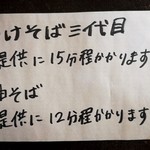 けそば三代目
提供に15分程かかります
油そば
提供に12分程かかります